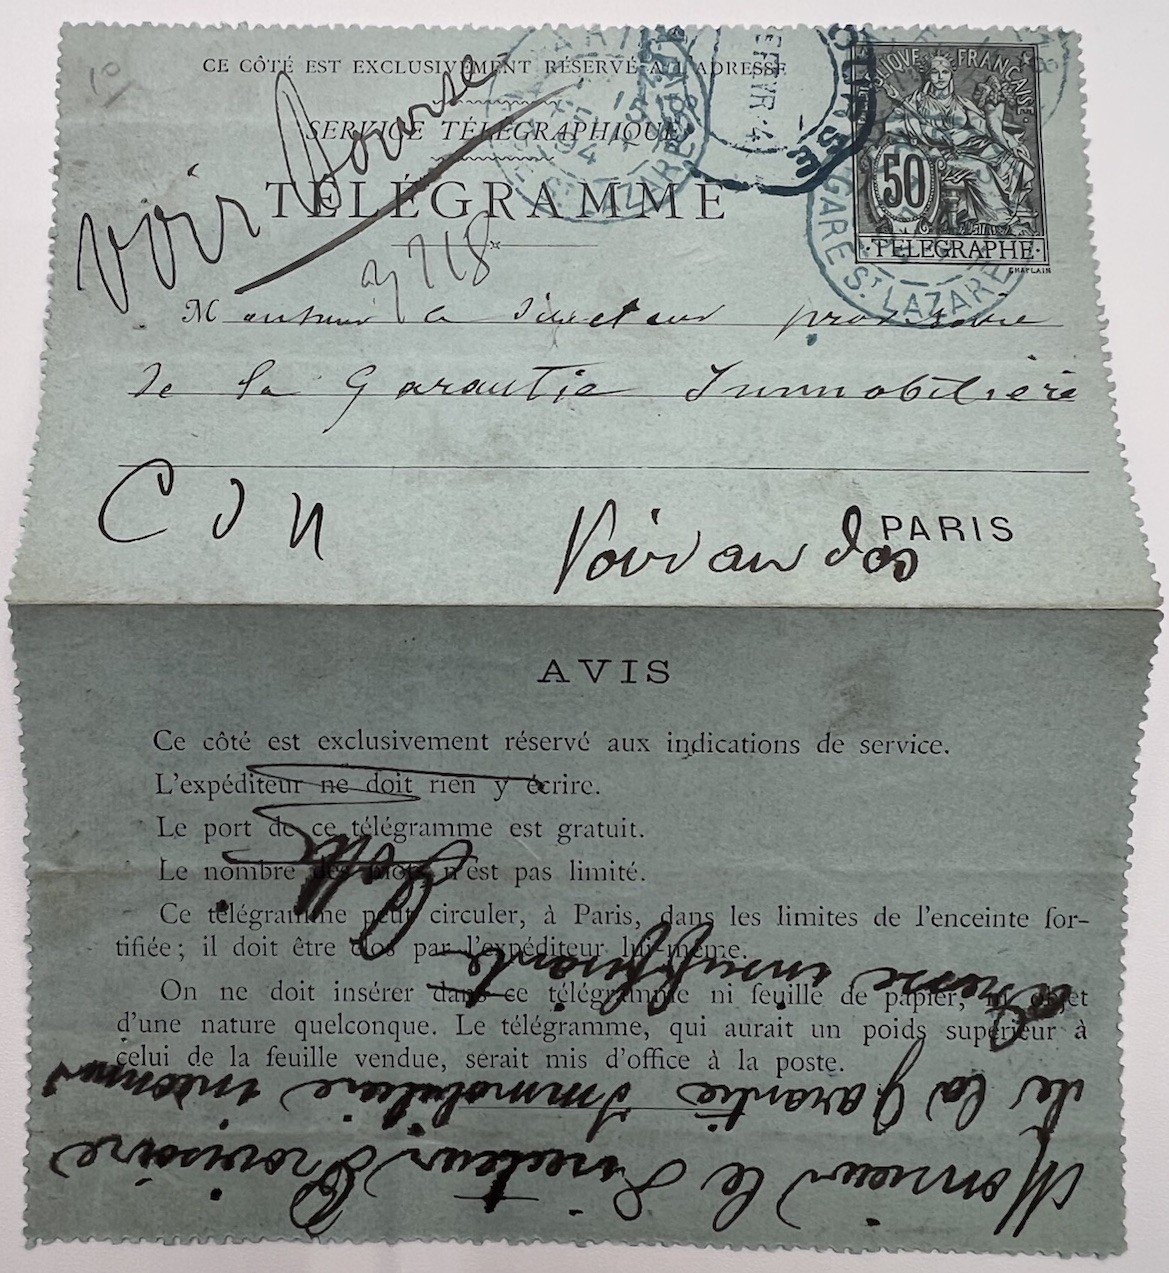 CE CÔTÉ EST EXCLUSIVEMENT RÉSERVÉ A L'ADRESSE
SERVICE TÉLÉGRAPHIQUE
TÉLÉGRAMME
voir Bourse
718
RÉPUBLIQUE FRANÇAISE
50
TELEGRAPHE
CHAPLAIN
PARIS
GARE ST LAZARE
94
BOURSE
GARE ST LAZARE
Monsieur le Directeur provisoire
de la Garantie Immobilière
PARIS
Voir au dos
AVIS
Ce côté est exclusivement réservé aux indications de service.
L'expéditeur ne doit rien y écrire.
Le port de ce télégramme est gratuit.
Le nombre des mots n'est pas limité.
Ce télégramme peut circuler, à Paris, dans les limites de l'enceinte for-
tifiée; il doit être clos par l'expéditeur lui-même.
On ne doit insérer dans ce télégramme ni feuille de papier, ni objet
d'une nature quelconque. Le télégramme, qui aurait un poids supérieur à
celui de la feuille vendue, serait mis d'office à la poste.
Monsieur le Directeur Provisoire
de la Garantie Immobilière inconnu
adresse insuffisante